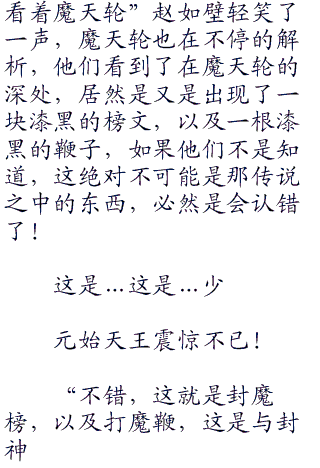 看着魔天轮”赵如壁轻笑了
一声，魔天轮也在不停的解
析，他们看到了在魔天轮的
深处，居然是又是出现了一
块漆黑的榜文，以及一根漆
黑的鞭子，如果他们不是知
道，这绝对不可能是那传说
之中的东西，必然是会认错
了！
这是…这是…少
元始天王震惊不已！
“不错，这就是封魔
榜，以及打魔鞭，这是与封
神